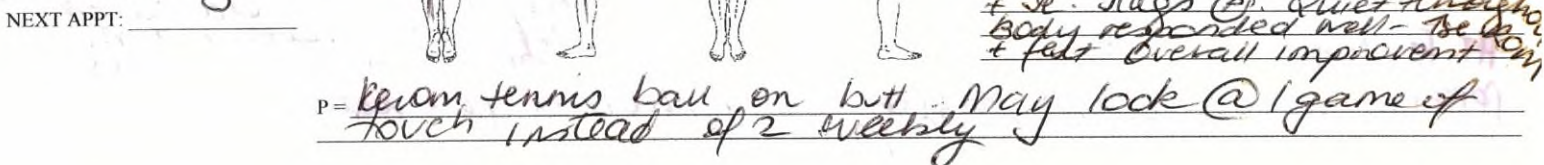 NEXT APPT:
Quiet
Body responded well -
+ felt overall improvement
P = tennis ball on butt. May look @ 1 game of
touch instead of 2 weekly